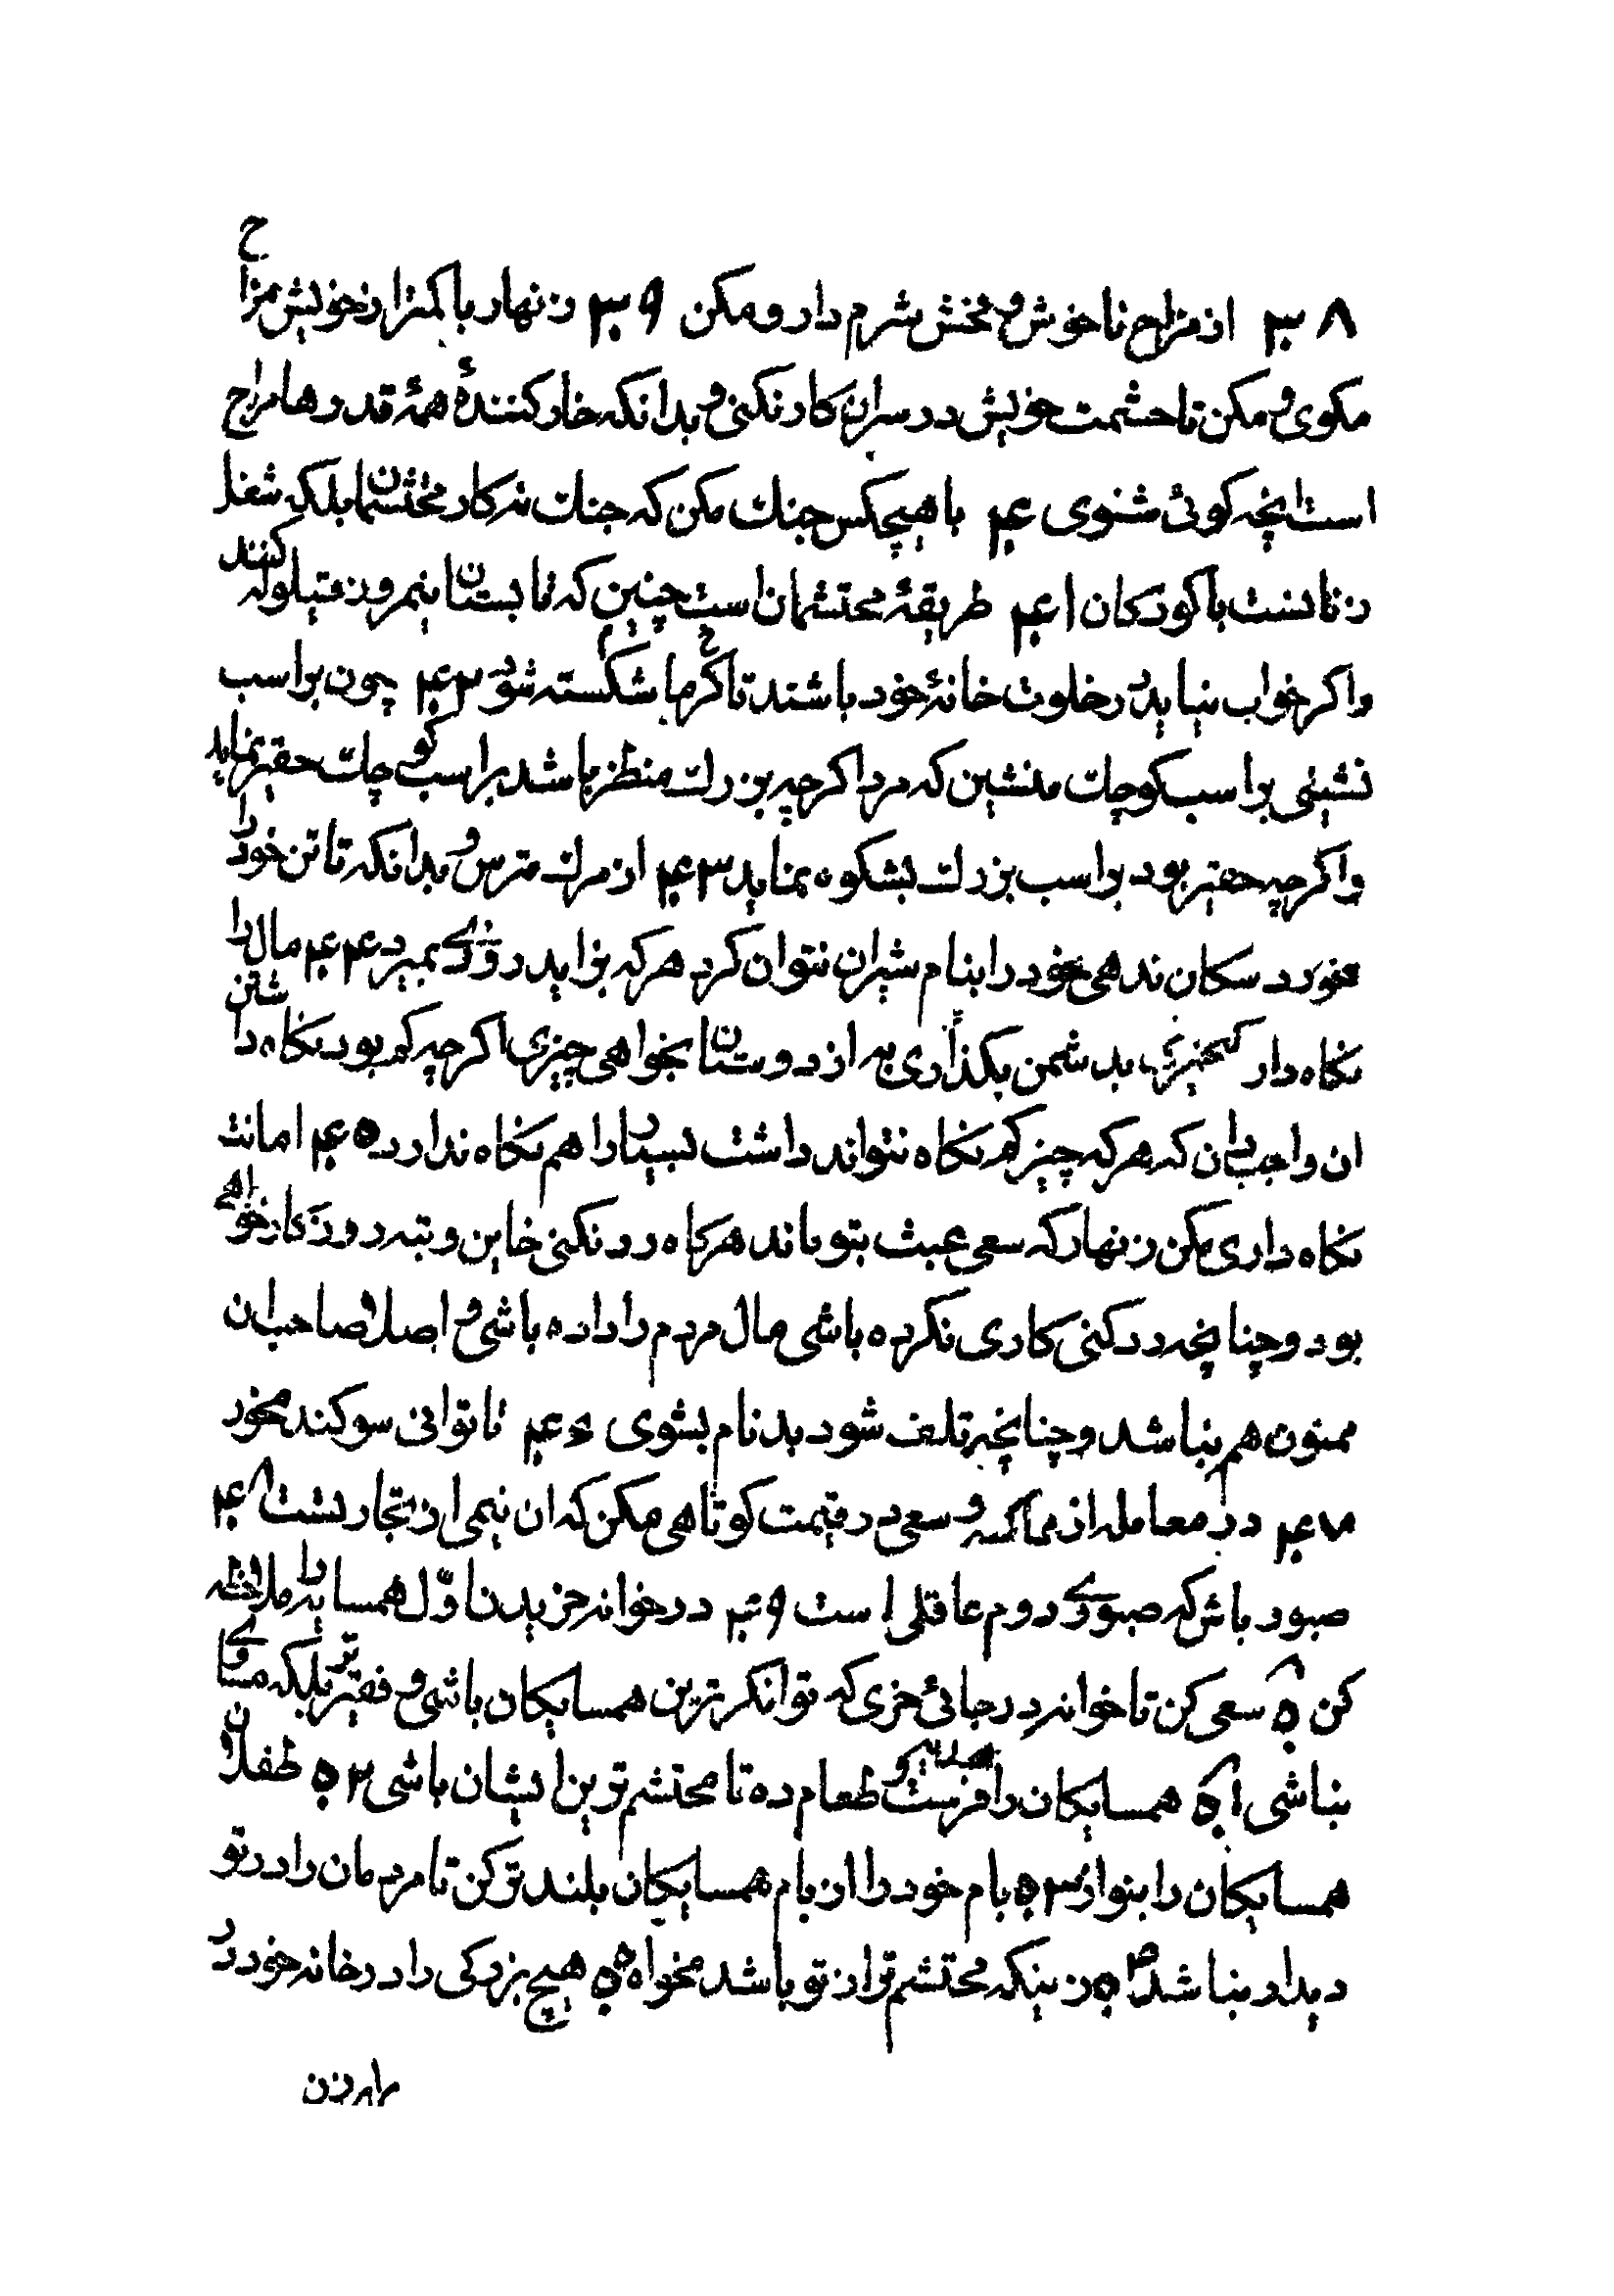 ۳۸ از مزاح ناخوش و فحش شرم دار و مکن ۳۹ زنهار با کمتر از خویش مزاح
مکوی و مکن تا حشمت خویش در سر ان کار نکنی و بدانکه خار کنندهٔ همهٔ قدرها مزاح
است انچه کوئی شنوی ۴۰ با هیچکس جنك مکن که جنك نه کار محتشمان بلکه شغل
زنانست با کودکان ۴۱ طریقهٔ محتشمان است چنین که تابستان نیمروز قیلوله کنند
و اکر خواب نیاید در خلوت خانهٔ خود باشند تا کرما شکسته شود ۴۲ چون بر اسب
نشینی بر اسب کوچك منشین که مرد اکرچه بزرك منظر باشد بر اسب کوچك حقیر نماید
و اکرچه حقیر بود بر اسب بزرك بشکوه نماید ۴۳ از مرك مترس و بدانکه تا تن خود را
بخورد سکان ندهی خود را بنام شیران نتوان کرد هر که بزاید روزی بمیرد ۴۴ مال را
نکاه دار که چیزی بدشمن بکذاری به از دوستان بخواهی چیزی اکرچه کم بود نکاه داشتن
ان واجب دان که هر که چیز کم نکاه نتواند داشت بسیار را هم نکاه ندارد ۴۵ امانت
نکاه داری مکن زنهار که سعی عبث بتو ماند هرکاه رد نکنی خاین و تبه روزکار خواهی
بود و چنانچه رد کنی کاری نکرده باشی مال مردم را داده باشی و اصلا صاحبان
ممنون هم نباشد و چنانچه تلف شود بدنام بشوی ۴۶ تا توانی سوکند مخور
۴۷ در معامله از مماکسه و سعی در قیمت کوتاهی مکن که ان نیمی از تجارتست ۴۸
صبور باش که صبوری دوم عاقلی است ۴۹ در خوانه خریدن اوّل همسایه را ملاحظه
کن ۵۰ سعی کن تا خوانه در جائی خری که توانکرترین همسایکان باشی و فقیرتر بلکه مساوی
نباشی ۵۱ همسایکان را هدیه فرست و طعام ده تا محتشم‌ترین ایشان باشی ۵۲ طفلان
همسایکان را بنواز ۵۳ بام خود را از بام همسایکان بلندتر کن تا مردمان را در تو
دیدار نباشد ۵۴ زنیکه محتشم‌تر از تو باشد مخواه ۵۵ هیچ بزرکی را در خانه خود در